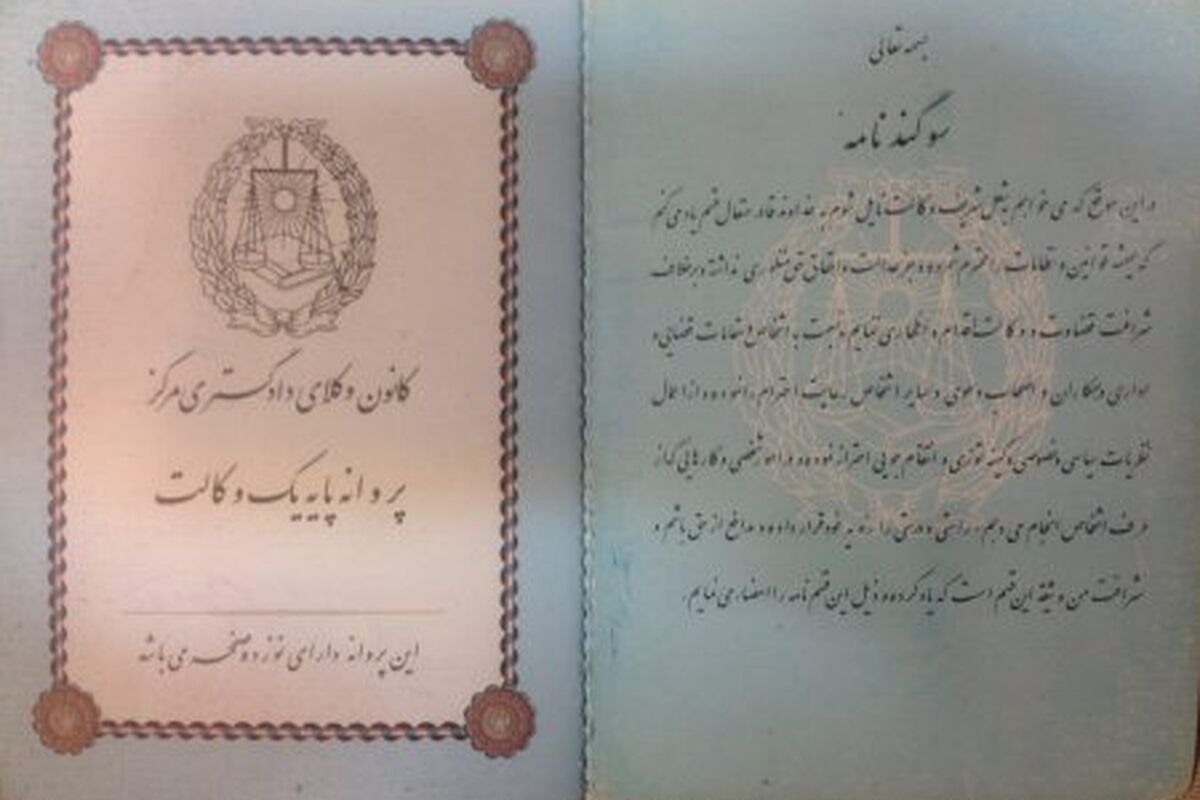 بسمه تعالی
سوگند نامه
در این موقع که می خواهم به شغل شریف وکالت نایل شوم به خداوند قادر متعال قسم یاد می کنم
که همیشه قوانین و نظامات را محترم شمرده و جز عدالت و احقاق حق منظوری نداشته و برخلاف
شرافت قضاوت و وکالت اقدام و اظهاری ننمایم و نسبت به اشخاص و مقامات قضایی و
اداری و همکاران و اصحاب دعوی و سایر اشخاص رعایت احترام را نموده و از اعمال
نظریات سیاسی و خصوصی و کینه توزی و انتقام جویی احتراز نموده و در امور شخصی و کارهایی که از
طرف اشخاص انجام می دهم، راستی و درستی را رویه خود قرار داده و مدافع از حق باشم و
شرافت من وثیقه این قسم است که یاد کرده و ذیل این قسم نامه را امضاء می نمایم.
کانون وکلای دادگستری مرکز
پروانه پایه یک وکالت
این پروانه دارای نوزده صفحه می باشد